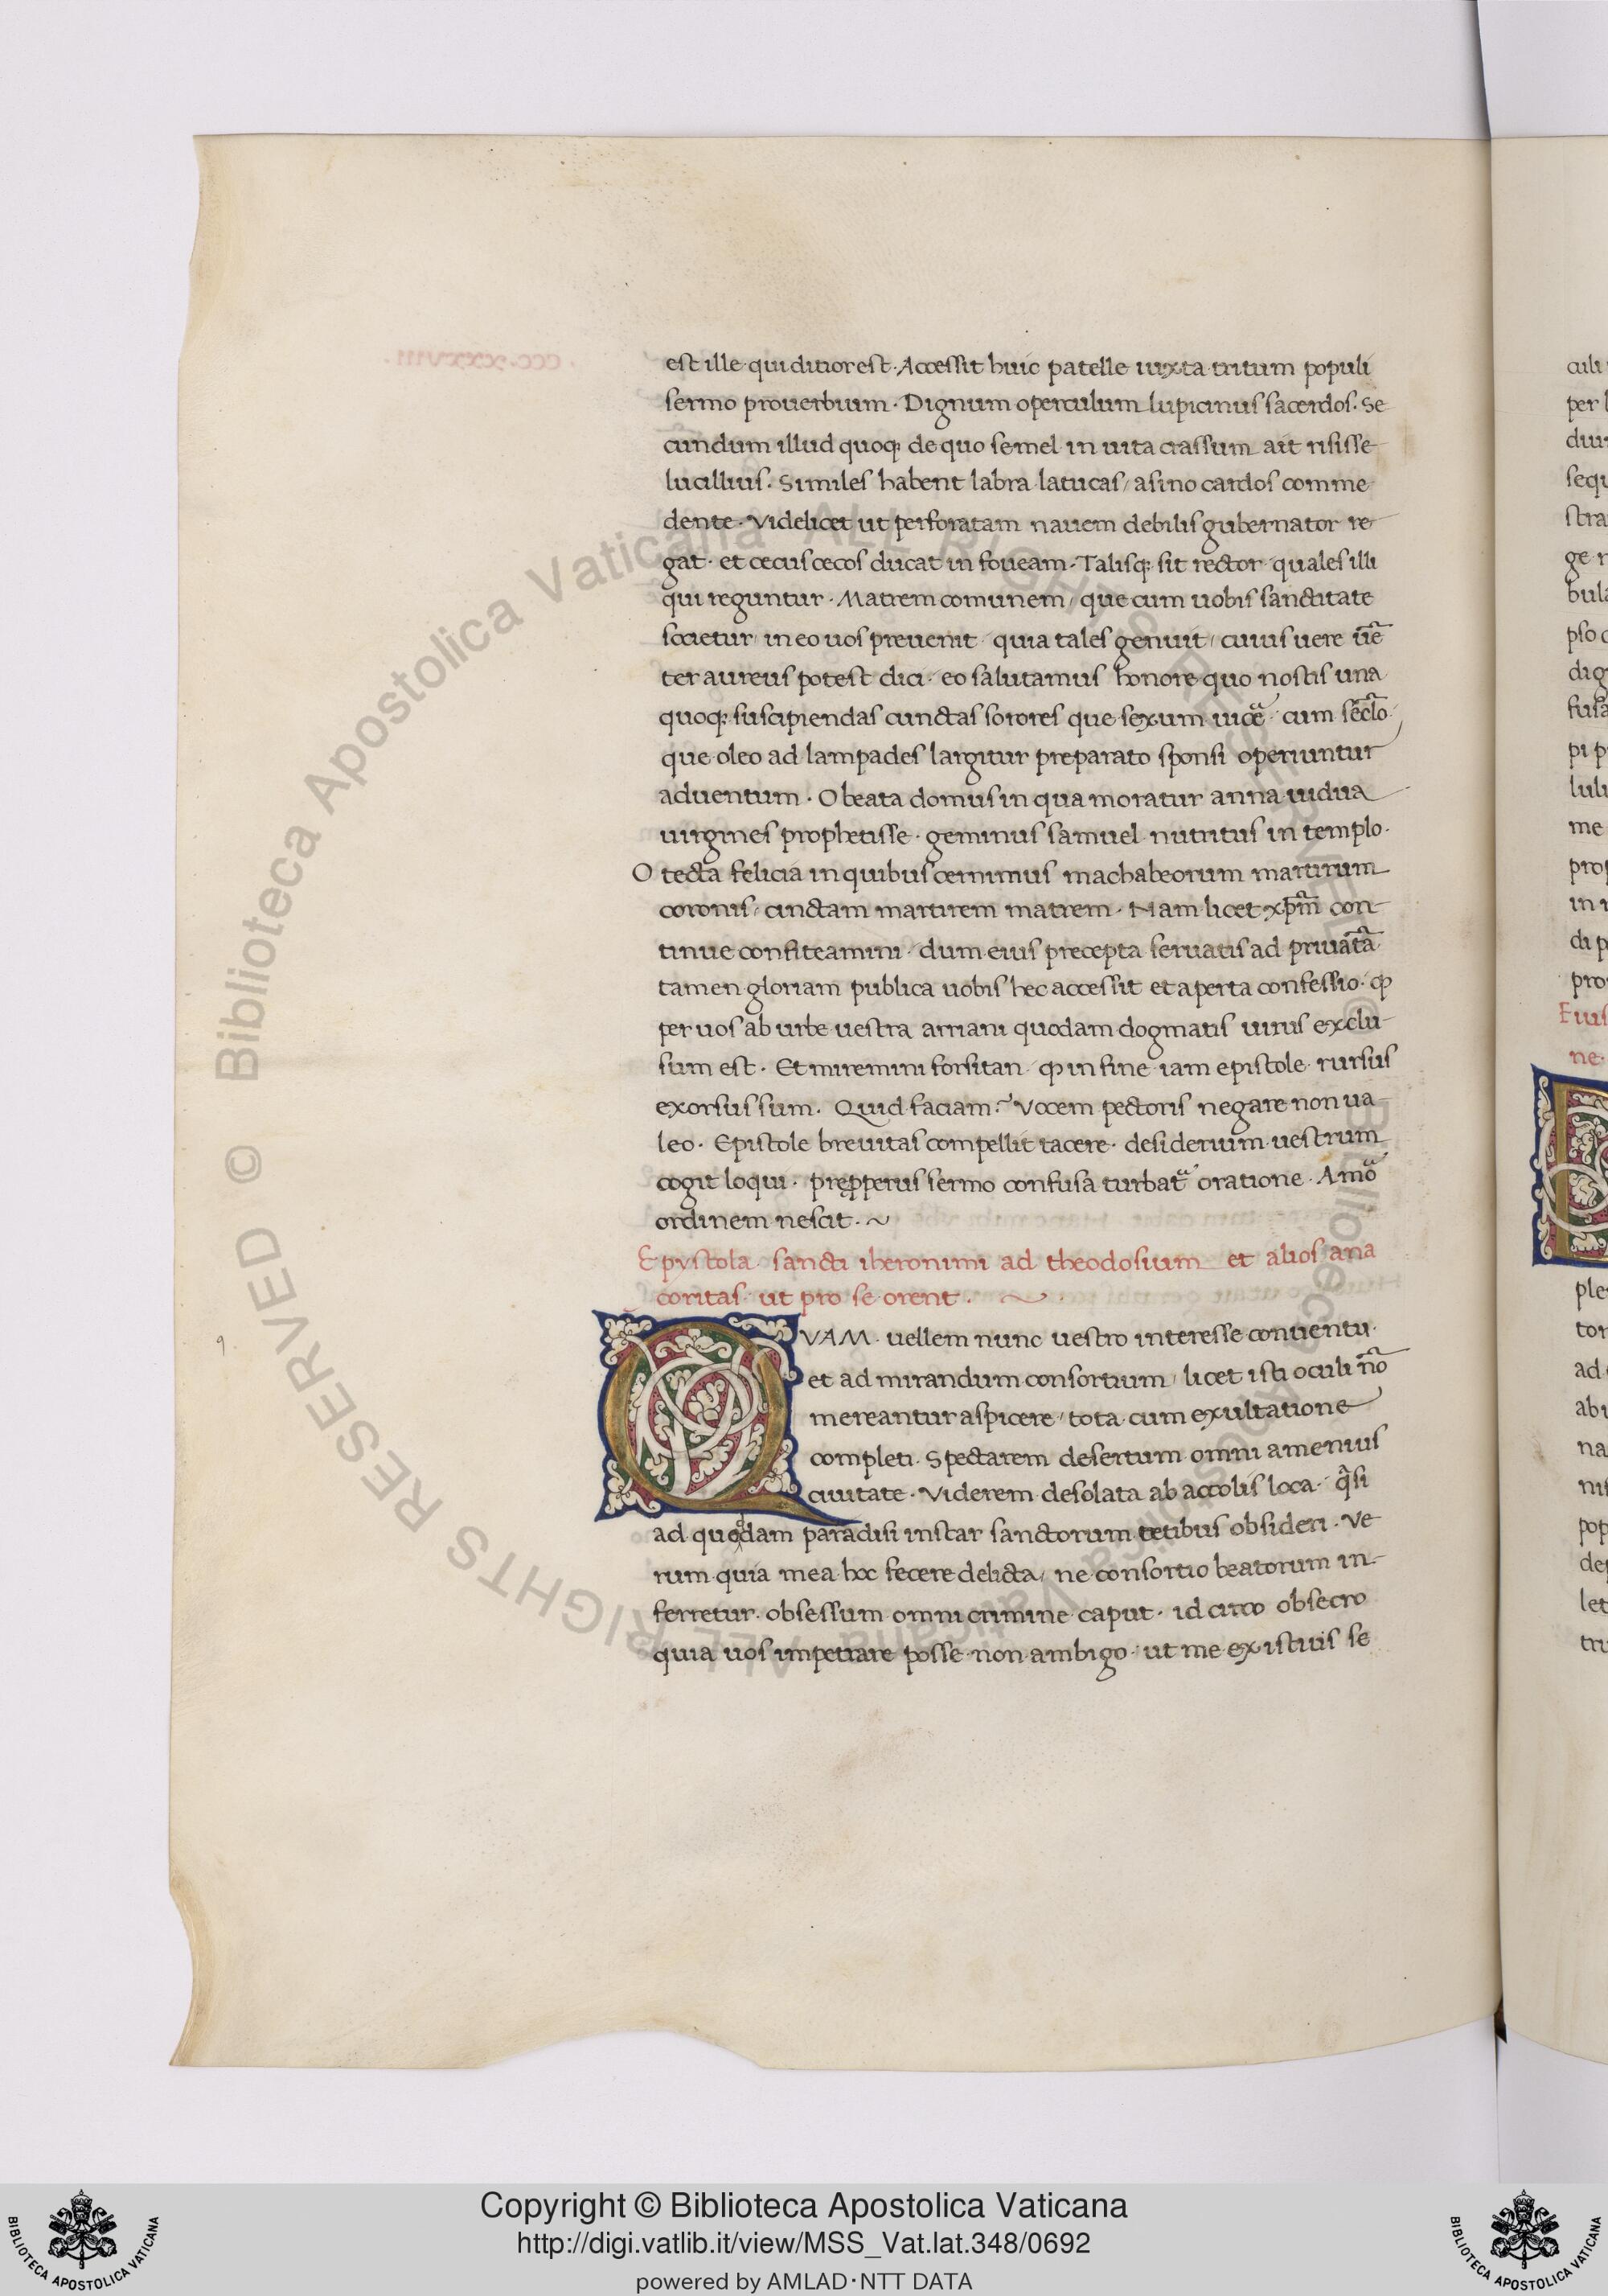 est ille qui ditior est. Accessit huic patelle iuxta tritum populi
sermo prouerbium. Dignum operculum lupicinus sacerdos. Se
cundum illud quoq; de quo semel in uita crassum ait risisse
lucillius. Similes habent labra latucas / asino cardos comme
dente. Videlicet ut perforatam nauem debilis gubernator re
gat. et cecus cecos ducat in foueam. Talisq; sit rector quales illi
qui reguntur. Matrem comunem / que cum uobis sanctitate
societur / in eo uos preuenit quia tales genuit / cuius uere uē
ter aureus potest dici. eo salutamus honore quo nostis una
quoq; suscipiendas cunctas sorores que sexum uicē cum sēclo
que oleo ad lampades largitur preparato sponsi operiuntur
aduentum. O beata domus in qua moratur anna uidua
uirgines prophetisse. geminus samuel nutritus in templo.
O tecta felicia in quibus cernimus machabeorum martirum
coronis / cinctam martirem matrem. Nam licet xp̄m con-
tinue confiteamini dum eius precepta seruatis ad priuatā
tamen gloriam publica uobis hec accessit et aperta confessio. ꝙ
per uos ab urbe uestra arriani quodam dogmatis uirus exclu-
sum est. Et miremini forsitan ꝙ in fine iam epistole rursus
exorsus sum. Quid faciam? Vocem pectoris negare non ua-
leo. Epistole breuitas compellit tacere. desiderium uestrum
cogit loqui. prepperus sermo confusa turbatᵃ oratione. Amō
ordinem nescit. ~
Epystola sancti iheronimi ad theodosium et alios ana
coritas ut pro se orent. ~
QVAM uellem nunc uestro interesse conuentu.
et admirandum consortium / licet isti oculi nō
mereantur aspicere / tota cum exultatione
completi. Spectarem desertum omni amenius
ciuitate. Viderem desolata ab accolis loca. qᵃsi
ad quoddam paradisi instar sanctorum cetibus obsideri. Ve
rum quia mea hoc fecere delicta / ne consortio beatorum in-
ferretur obsessum omni crimine caput. id circo obsecro
quia uos impetrare posse non ambigo. ut me ex istius se
culi
per
Eius
ne.
Copyright © Biblioteca Apostolica Vaticana
http://digi.vatlib.it/view/MSS_Vat.lat.348/0692
powered by AMLAD·NTT DATA
BIBLIOTECA APOSTOLICA VATICANA
BIBLIOTECA APOSTOLICA VATICANA
© Biblioteca Apostolica Vaticana ALL RIGHTS RESERVED
© Biblioteca Apostolica Vaticana ALL RIGHTS RESERVED